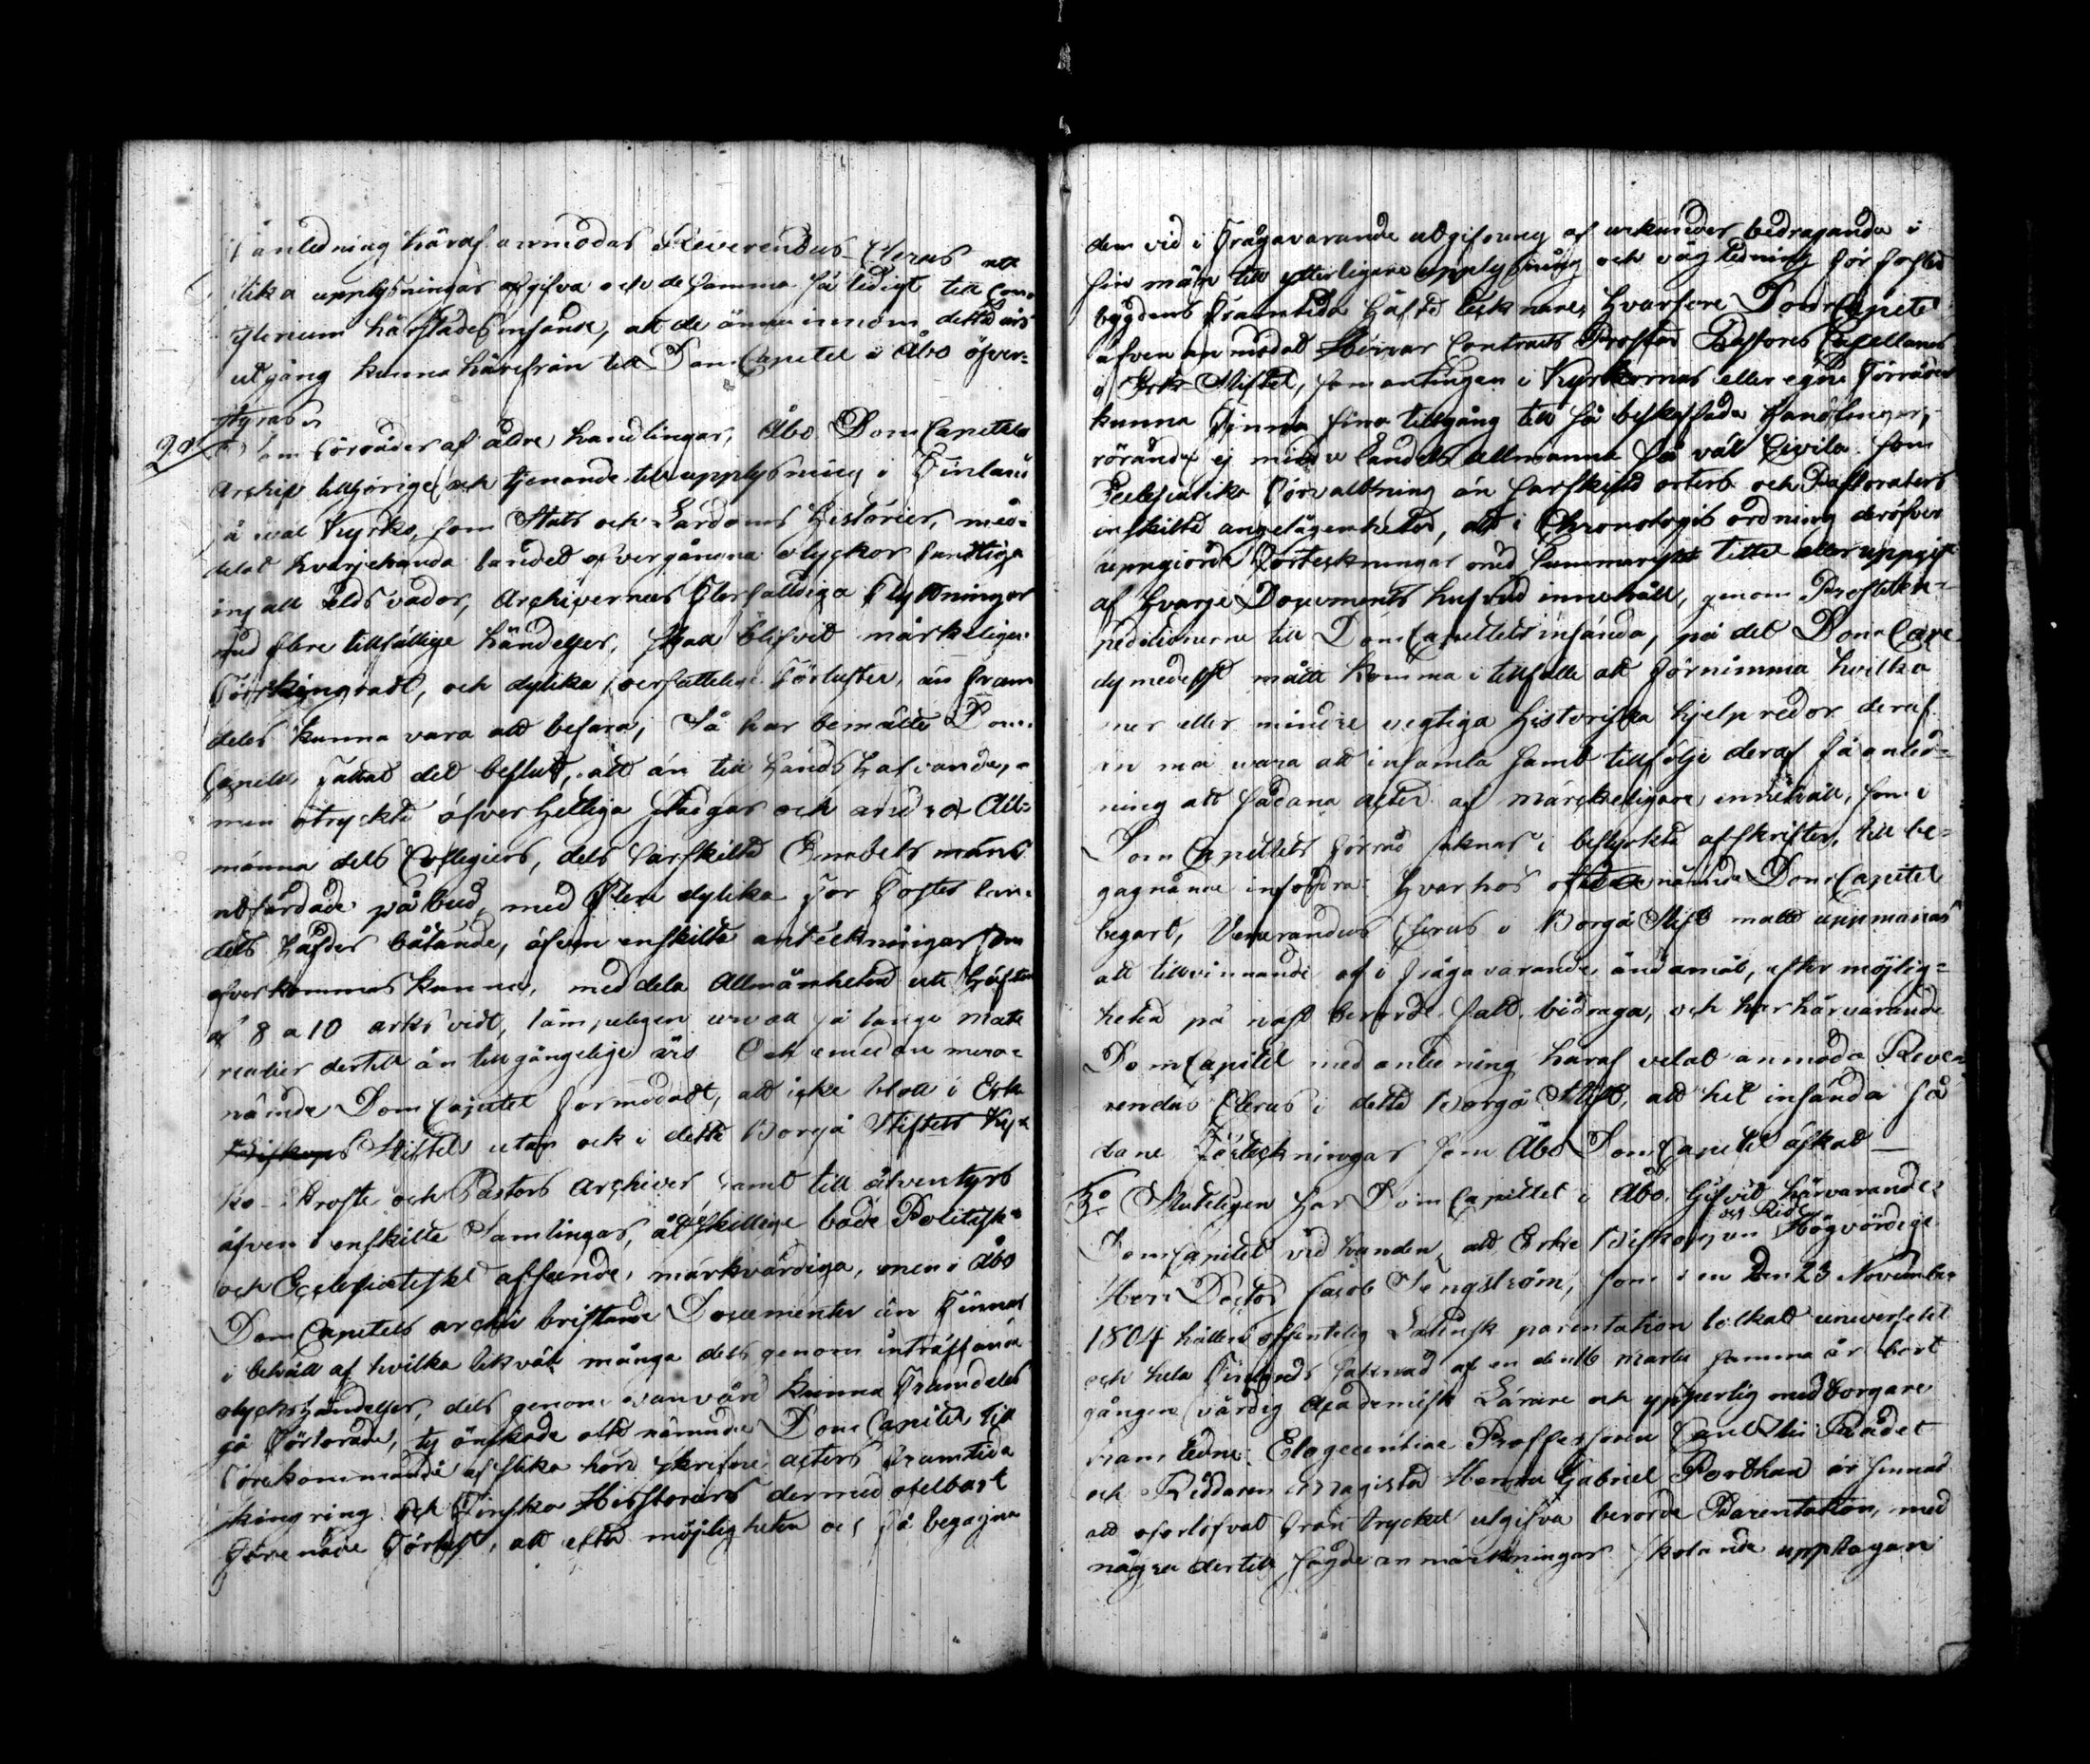 anledning häraf anmodas Reverendus Clerus att
slika upplysningar afgifva och desamma så tidigt till Con-
sistorium härstädes insände, att de ännu innom detta års
utgång kunna härifrån till Dom Capitel i Åbo öfver-
styras
2o Som förråder af äldre handlingar, Åbo Dom Capitels
Archif tillhörige och tjenande till upplysning i Finlands
så wäl Kyrko, som Stats och Lärdoms Historier, med-
delst hvarjehanda landet öfvergångna olyckor
eldsvådor, Archivernes flerfalldiga flyttningar
med flere tillfällige händelser, skall blifvit märkeligen
förskingradt, och dylika oersättelige förluster, än fram
deles kunna vara att befara; Så har bemälte Dom
Capitel fattat det beslut, att än till hands hafvande,
men otryckte öfverhetliga bref och andra All-
männa dels Collegiers, dels särskilte Embets mäns
utfärdade påbud, med flere dylika för Fosterlan-
dets häfder båtande, äfven enskilta anteckningar som
öfverkommas kunna, meddela Allmänheten uti häften
af 8 a 10 ark vidt, så länge mate
rialier dertill än tillgängelige äro Och emedan merbe-
nämde Dom Capitel förmodadt, att icke blott i Erke
Stiftet utan ock i detta Borgå Stiftets Kyr-
ko- Proste och Pastors Archiver samt till äfventyrs
äfven i enskilte Samlingar, åtskillige både Politiske
och Ecclesiastiskt afseende, märkvärdiga, men i Åbo
Dom Capitels archiv bristande Documenter än finnas
i behåll af hvilka likväl många dels genom inträffande
olyckshändelser, dels genom vanvård kunna framdeles
gå förlorade, ty önskade ofta nämnde Dom Capitel till
förekommande af slika hand skrefne acters framtida
skingring och Finska Historiens dermed ofelbart
förenade förlust, att efter möjligheten och få begagna
dem vid i frågavarande utgifvning af urkunder bidragande i
sin mån till ytterligare upplysning och vägledning för foster
bygdens framtida Häfde tecknare, hvarföre Dom Capitel
äfven anmodat Herrar Contracts Prostar Pastores Capellaner
i Erke Stiftet, som antingen i Kyrkornas eller egne förråder
kunna finna sina tillgång till så beskaffade handlingar,
rörande ej mindre landets allmänna så väl Civila som
Ecclesiastika förvaltning än särskild orters och Pastoraters
enskilta angelägenheter, att i Chronologisk ordning deröfver
uppgjorde förteckningar med Summarisk Titel eller uppgift
af hvarje Documents hufvud innehåll, genom Prosteex-
peditionerne till Dom Capitlets insända, på det Dom Capi
dymedelst måtte komma i tillfälle att förnimma hvilka
mer eller mindre vigtiga historiska hjelpredor deraf
än må vara att insamla samt till följe deraf få anled-
ning att sådana acter af märkeligare innehåll, som i
Dom Capitlets förråd saknas i bestyrkte afskrifter, till be-
gagnande infordra: hvarhos ofta nämnde Dom Capitel
begärt, Venerandus Clerus i Borgå Stift måtte uppmanas
att tillvinnande af i frågavarande ändamål, efter möjlig-
heten på nyss berörde sätt bidraga, och har härvarande
Dom Capitel med anledning häraf velat anmoda Reve-
rendus Clerus i detta Borgå Stift, att hit insända så
dane Förteckningar som Åbo Dom Capitel äskat —
3o Sluteligen har Dom Capitlet i Åbo gifvit härvarande
Dom Capitel vid handen, att Erke Biskopen Högvördige
och Ridd
Herr Doctor Jacob Tengström, som i en den 23 November
1804 hållen offentelig Latinsk parentation tolkat universitetet
och hela Finlands saknad af en den 16 Martii samma år bort
gången värdig Academisk Lärare och ypperlig medborgare
framledne Eloquentiae Professoren Cancellie Rådet
och Riddaren Magister Henric Gabriel Porthan är sinnad
att oförtöfvat från trycket utgifva berörde Parentation, med
några dertill fogde anmärkningar skolande upptagan